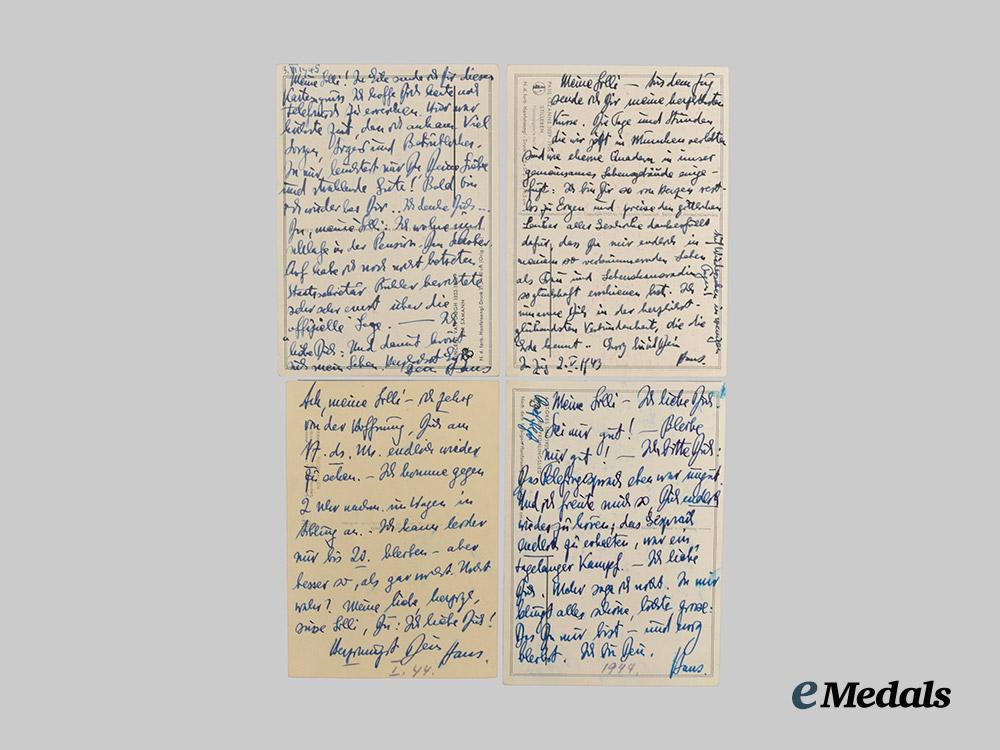 3. VI 1943
Meine Lolli! In Eile sende ich Dir diesen
Kartengruss. Ich hoffe Dich heute noch
telefonisch zu erreichen. Hier war
Zeit, denn ich ankam. Viel
Sorgen, Ärger und
In mir leuchtet nur Du, Deine Liebe
und strahlende Güte! Bald bin
ich wieder bei Dir.. Ich denke Dich...
Du, meine Lolli: Ich wohne und
schlafe in der Pension. Den
Auf habe ich noch nicht betreten
Staatssekretär Köhler berichtete
sehr sehr ernst über die
offizielle Lage. — Ich
liebe Dich: Und damit
sich mein Leben.
Dein Hans
Meine Lolli — Aus dem Zug
sende ich Dir meine herzlichsten
Küsse. Die Tage und Stunden
die wir jetzt in München verlebten
sind wie eherne Quadern in unser
gemeinsames Lebensgebäude einge-
fügt: Ich bin Dir so von Herzen rest
los zu Eigen und preise den göttlichen
Lenker aller Geschicke
dafür, dass Du mir endlich in
meinem so Leben
als Frau und Lebenskameradin
so glückhaft erschienen bist. Ich
umarme Dich in der herzlichst-
glühendsten Verbundenheit, die die
Erde kennt.. Ewig bin ich Dein
Im Zug 2. V. 1943 Hans.
Auf Wiedersehen in wenigen
Tagen!
PAUL CÉZANNE 1839
STILLEBEN
VINCENT VAN GOGH 1853
Ach, meine Lolli — ich zehre
von der Hoffnung, Dich am
17. ds. Mts. endlich wieder
zu sehen. — Ich komme gegen
2 Uhr nachm. im Wagen in
Aibling an.. Ich kann leider
nur bis 20. bleiben — aber
besser so, als gar nicht. Nicht
wahr? Meine liebe, herzige,
süsse Lolli, Du: Ich liebe Dich!
Dein Hans.
I. 44.
Meine Lolli — Ich liebe Dich.
Sei mir gut! — Bleibe
mir gut! — Ich bitte Dich:
Das Telefongespräch eben war
Und ich freute mich so, Dich endlich
wieder zu hören; das Gespräch
endlich zu erhalten, war ein
tagelanger Kampf. — Ich liebe
Dich. Mehr sage ich nicht. In mir
klingt alles schöne, lichte, grosse:
Das Du mir bist — und ewig
bleibst. Ich bin Dein.
1944. Hans.
eMedals